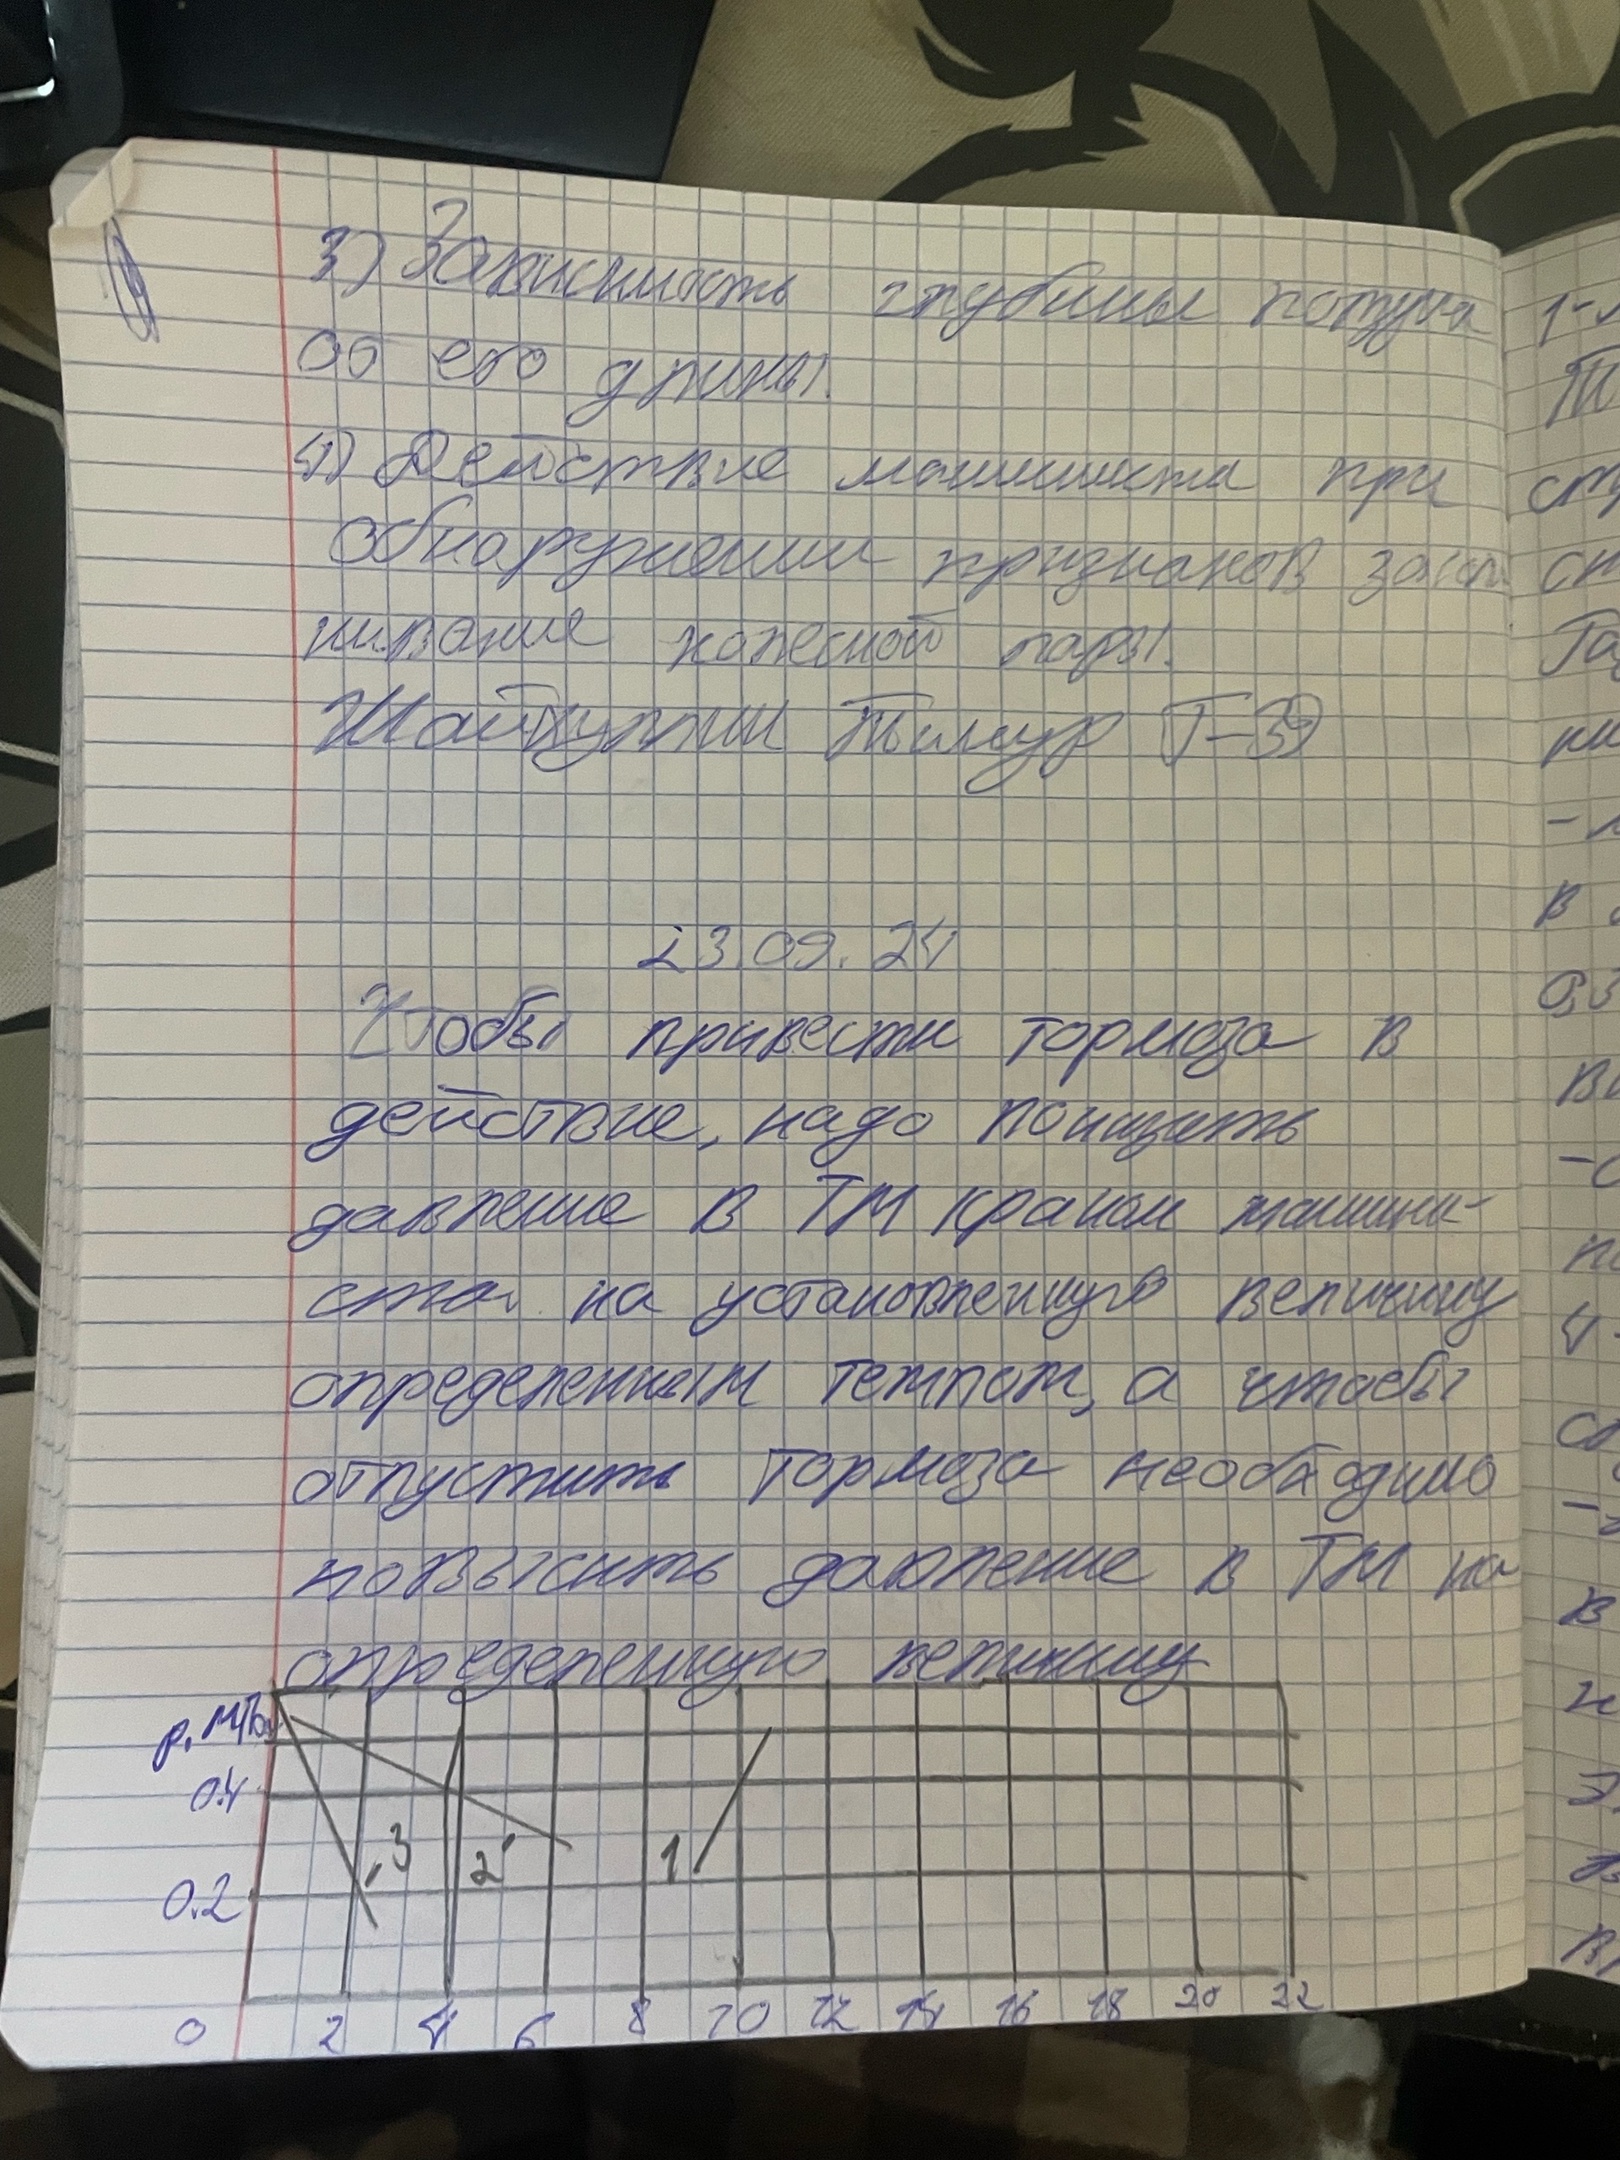 3) Зависимость глубины ползуна
от его длины.
4) Действие машиниста при
обнаружении признаков закли
нивание колесной пары.
Тимур Т-39
23.09.24
Чтобы привести тормоза в
действие, надо понизить
давление в ТМ краном машини-
ста на установленную величину
определенным темпом, а чтобы
отпустить тормоза необходимо
повысить давление в ТМ на
определенную величину
р. МПа
0.4
3 2 1
0.2
0 2 4 6 8 10 12 14 16 18 20 22